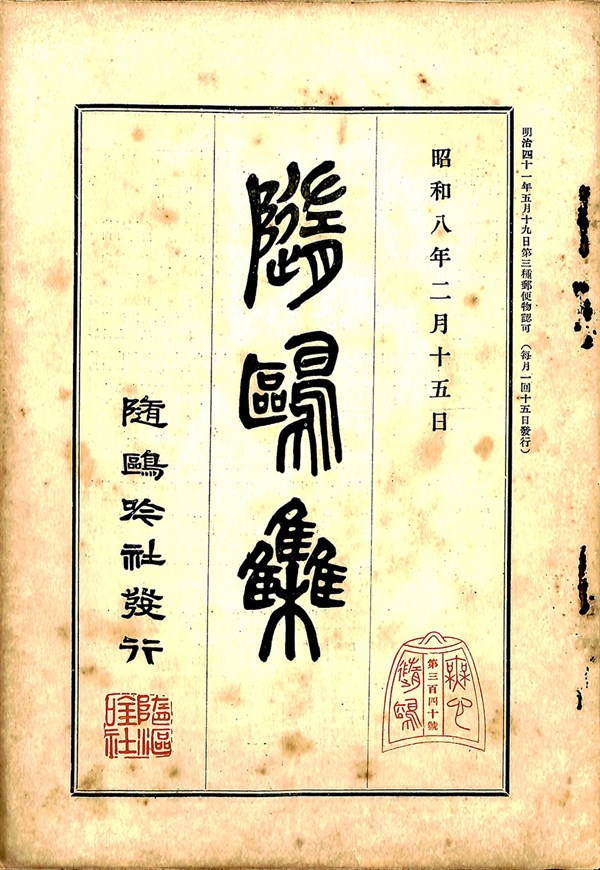 明治四十一年五月十九日第三種郵便物認可(每月一回十五日發行)
昭和八年二月十五日
第三百四十號
隨鷗集
隨鷗吟社發行